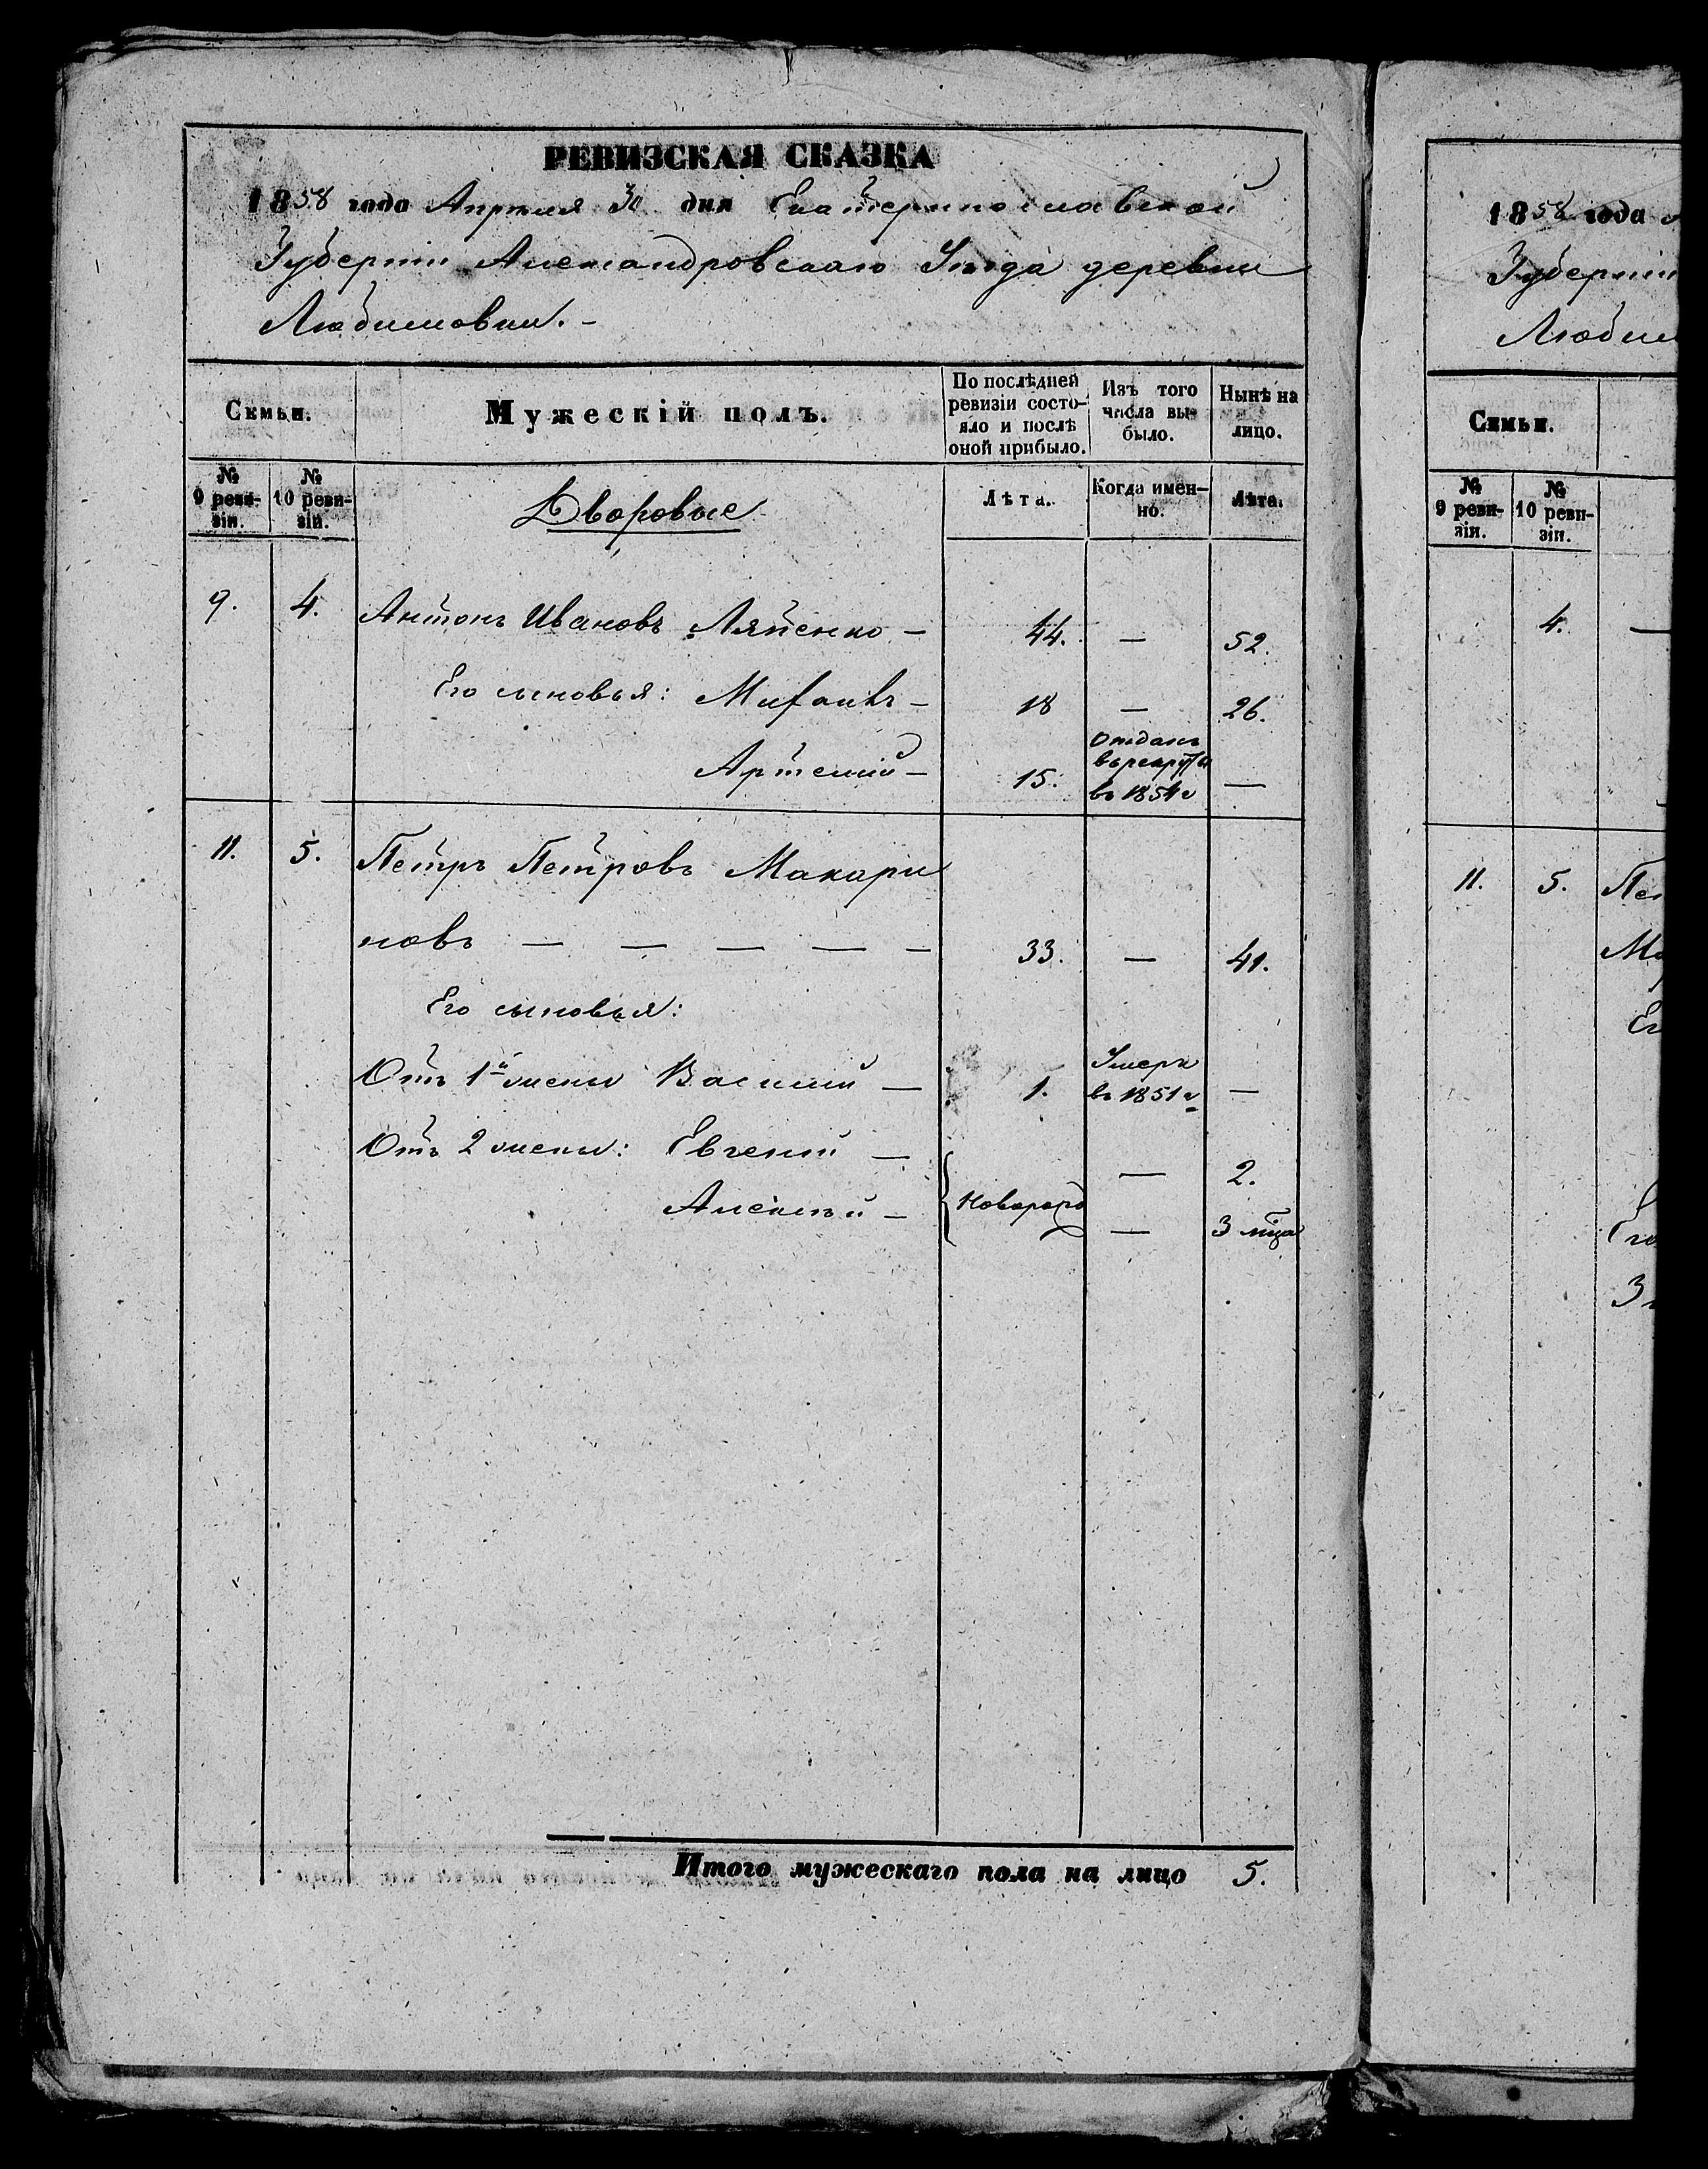 РЕВИЗСКАЯ СКАЗКА
1858 года Апреля 30 дня Екатеринославской
Губерніи Александровскаго Уѣзда деревни
Любимовки. -
Семьи.
Мужескій полъ.
По послѣдней ревизіи состояло и послѣ оной прибыло.
Изъ того числа выбыло.
Нынѣ на лицо.
№ 9 ревизіи.
№ 10 ревизіи.
Дворовые
Лѣта.
Когда именно.
Лѣта.
9. 4. Антонъ Ивановъ Ляпенко - 44. — 52.
Его сыновья: Митофанъ - 18 — 26.
Артемій - 15. Отданъ в рекруты въ 1854 г —
11. 5. Петръ Петровъ Макари
новъ — — — — - 33. — 41.
Его сыновья:
Отъ 1й жены Василий — 1. Умеръ въ 1851 г —
Отъ 2 жены: Евгений — — 2.
Алексѣй - Новорож — 3 мца
Итого мужескаго пола на лицо 5.
1858 года
Губерніи
Семьи.
№ 9 ревизіи.
№ 10 ревизіи.
4. —
11. 5.